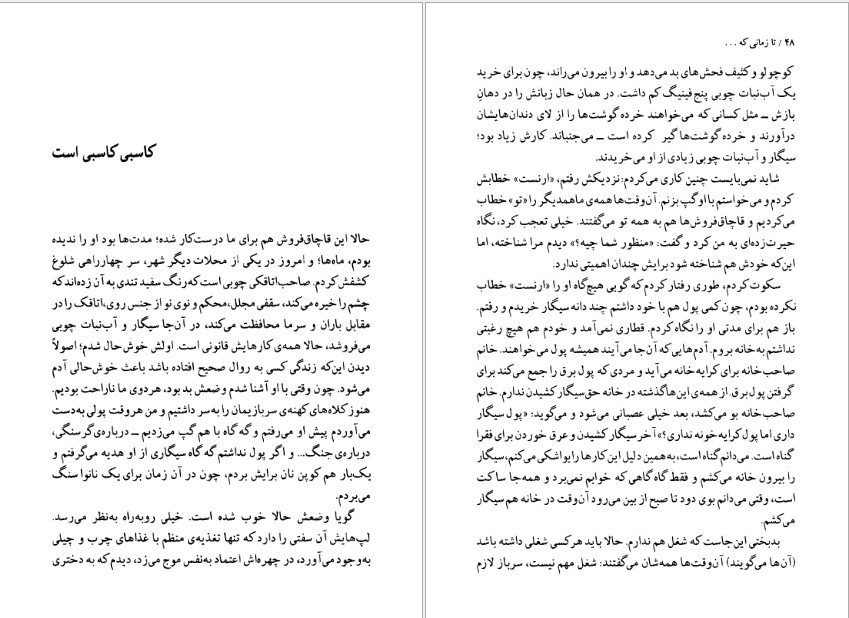 کاسبی کاسبی است
حالا این قاچاق‌فروش هم برای ما درست‌کار شده؛ مدت‌ها بود او را ندیده
بودم، ماه‌ها؛ و امروز در یکی از محلات دیگر شهر، سر چهارراهی شلوغ
کشفش کردم. صاحب اتاقکی چوبی است که رنگ سفید تندی به آن زده‌اند که
چشم را خیره می‌کند، سقفی مجلل، محکم و نوی نو از جنس روی، اتاقک را در
مقابل باران و سرما محافظت می‌کند، در آن‌جا سیگار و آب‌نبات چوبی
می‌فروشد، حالا همه‌ی کارهایش قانونی است. اولش خوش‌حال شدم؛ اصولاً
دیدن این‌که زندگی کسی به روال صحیح افتاده باشد باعث خوش‌حالی آدم
می‌شود. چون وقتی با او آشنا شدم وضعش بد بود، هردوی ما ناراحت بودیم.
هنوز کلاه‌های کهنه‌ی سربازیمان را به سر داشتیم و من هروقت پولی به‌دست
می‌آوردم پیش او می‌رفتم و گه گاه با هم گپ می‌زدیم ــ درباره‌ی گرسنگی،
درباره‌ی جنگ... و اگر پول نداشتم گه گاه سیگاری از او هدیه می‌گرفتم و
یک‌بار هم کوپن نان برایش بردم، چون در آن زمان برای یک نانوا سنگ
می‌بردم.
گویا وضعش حالا خوب شده است. خیلی روبه‌راه به‌نظر می‌رسد.
لپ‌هایش آن سفتی را دارد که تنها تغذیه‌ی منظم با غذاهای چرب و چیلی
به‌وجود می‌آورد، در چهره‌اش اعتماد به‌نفس موج می‌زد، دیدم که به دختری
۴۸ / تا زمانی که ...
کوچولو و کثیف فحش‌های بد می‌دهد و او را بیرون می‌راند، چون برای خرید
یک آب‌نبات چوبی پنج فینیگ کم داشت. در همان حال زبانش را در دهانِ
بازش ــ مثل کسانی که می‌خواهند خرده گوشت‌ها را از لای دندان‌هایشان
درآورند و خرده گوشت‌ها گیر کرده است ــ می‌جنباند. کارش زیاد بود؛
سیگار و آب‌نبات چوبی زیادی از او می‌خریدند.
شاید نمی‌بایست چنین کاری می‌کردم: نزدیکش رفتم، «ارنست» خطابش
کردم و می‌خواستم با او گپ بزنم. آن‌وقت‌ها همه‌ی ما همدیگر را «تو» خطاب
می‌کردیم و قاچاق‌فروش‌ها هم به همه تو می‌گفتند. خیلی تعجب کرد، نگاه
حیرت‌زده‌ای به من کرد و گفت: «منظور شما چیه؟» دیدم مرا شناخته، اما
این‌که خودش هم شناخته شود برایش چندان اهمیتی ندارد.
سکوت کردم، طوری رفتار کردم که گویی هیچ‌گاه او را «ارنست» خطاب
نکرده بودم، چون کمی پول هم با خود داشتم چند دانه سیگار خریدم و رفتم.
باز هم برای مدتی او را نگاه کردم. قطاری نمی‌آمد و خودم هم هیچ رغبتی
نداشتم به خانه بروم. آدم‌هایی که آن‌جا می‌آیند همیشه پول می‌خواهند. خانم
صاحب‌خانه برای کرایه خانه می‌آید و مردی که پول برق را جمع می‌کند برای
گرفتن پول برق. از همه‌ی این‌ها گذشته در خانه حق سیگار کشیدن ندارم. خانم
صاحب خانه بو می‌کشد، بعد خیلی عصبانی می‌شود و می‌گوید: «پول سیگار
داری اما پول کرایه خونه نداری؟» آخر سیگار کشیدن و عرق خوردن برای فقرا
گناه است. می‌دانم گناه است، به‌همین دلیل این کارها را یواشکی می‌کنم، سیگار
را بیرون خانه می‌کشم و فقط گاه گاهی که خوابم نمی‌برد و همه‌جا ساکت
است، وقتی می‌دانم بوی دود تا صبح از بین می‌رود آن‌وقت در خانه هم سیگار
می‌کشم.
بدبختی این‌جاست که شغل هم ندارم. حالا باید هرکسی شغلی داشته باشد
(آن‌ها می‌گویند) آن‌وقت‌ها همه‌شان می‌گفتند: شغل مهم نیست، سرباز لازم